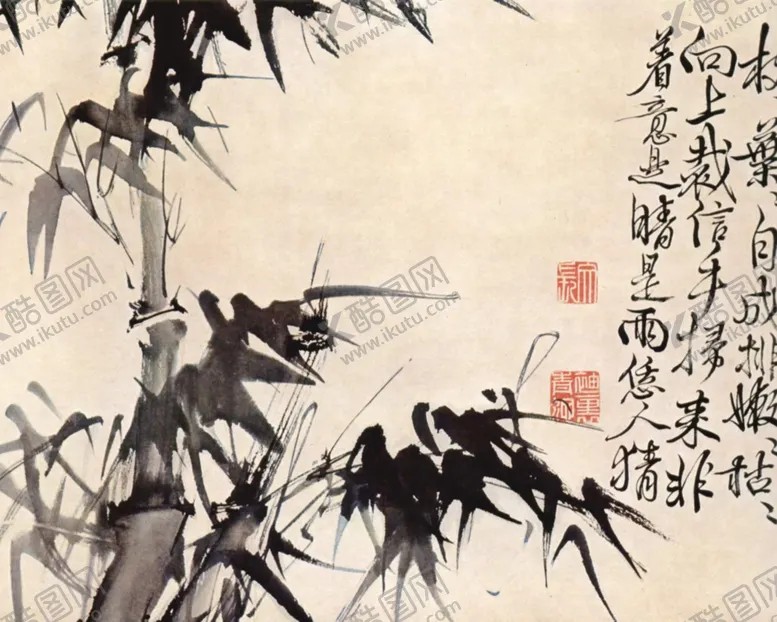 枝〻葉〻自成排嫩〻枯〻
向上栽信手掃来非
着意是晴是雨恁人猜
酷图网
www.ikutu.com